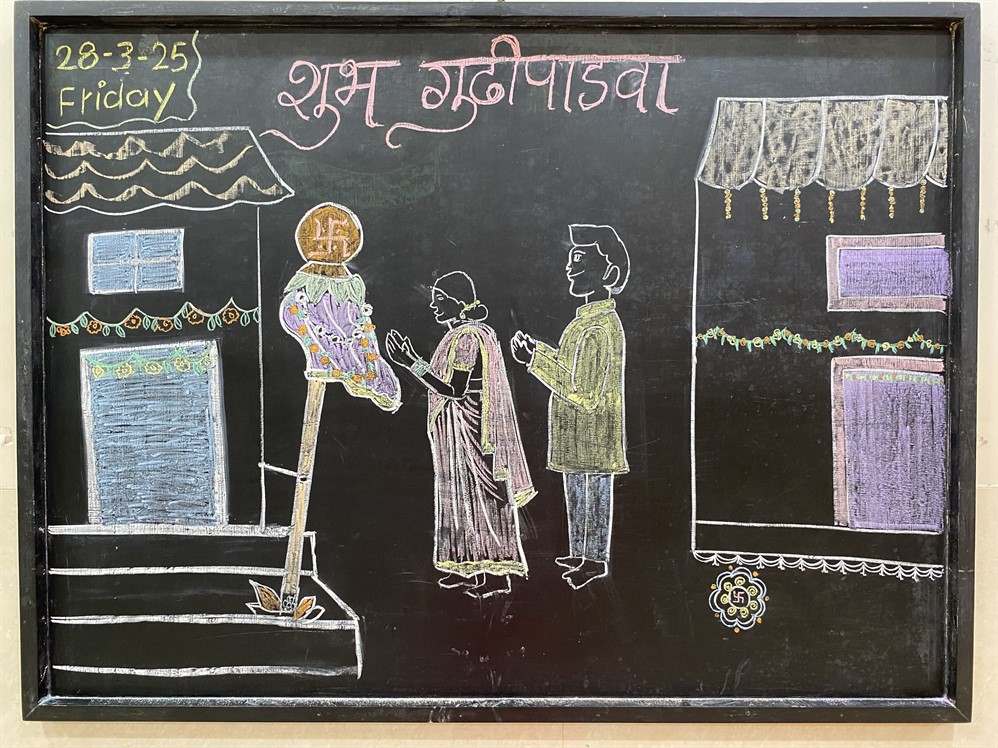 28-3-25
Friday
शुभ गुढीपाडवा